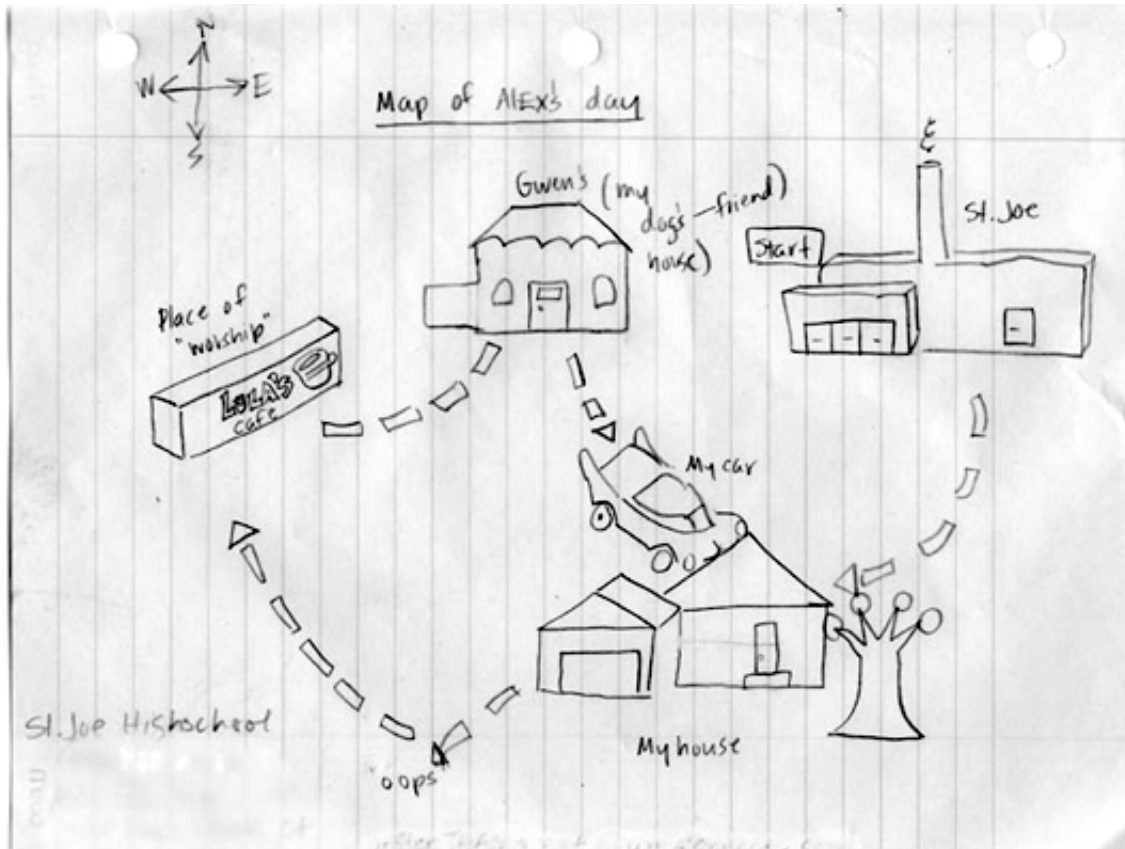 N
W E
S
Map of Alex's day
Gwen's (my
dog's friend)
house)
St. Joe
Start
Place of
"worship"
LULA'S
cafe
My car
My house
"oops"
St. Joe Highschool